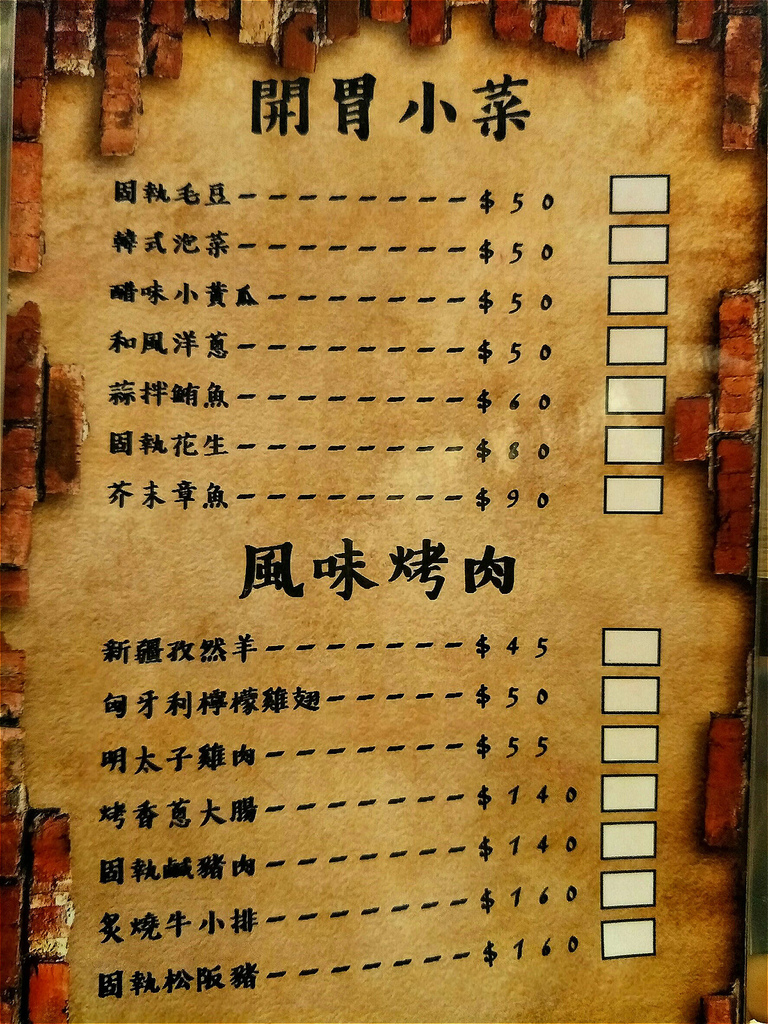 開胃小菜
固執毛豆--------$50
韓式泡菜--------$50
醋味小黃瓜-------$50
和風洋蔥--------$50
蒜拌鮪魚--------$60
固執花生--------$80
芥末章魚--------$90
風味烤肉
新疆孜然羊-------$45
匈牙利檸檬雞翅-----$50
明太子雞肉-------$55
烤香蔥大腸-------$140
固執鹹豬肉-------$140
炙燒牛小排-------$160
固執松阪豬-------$160